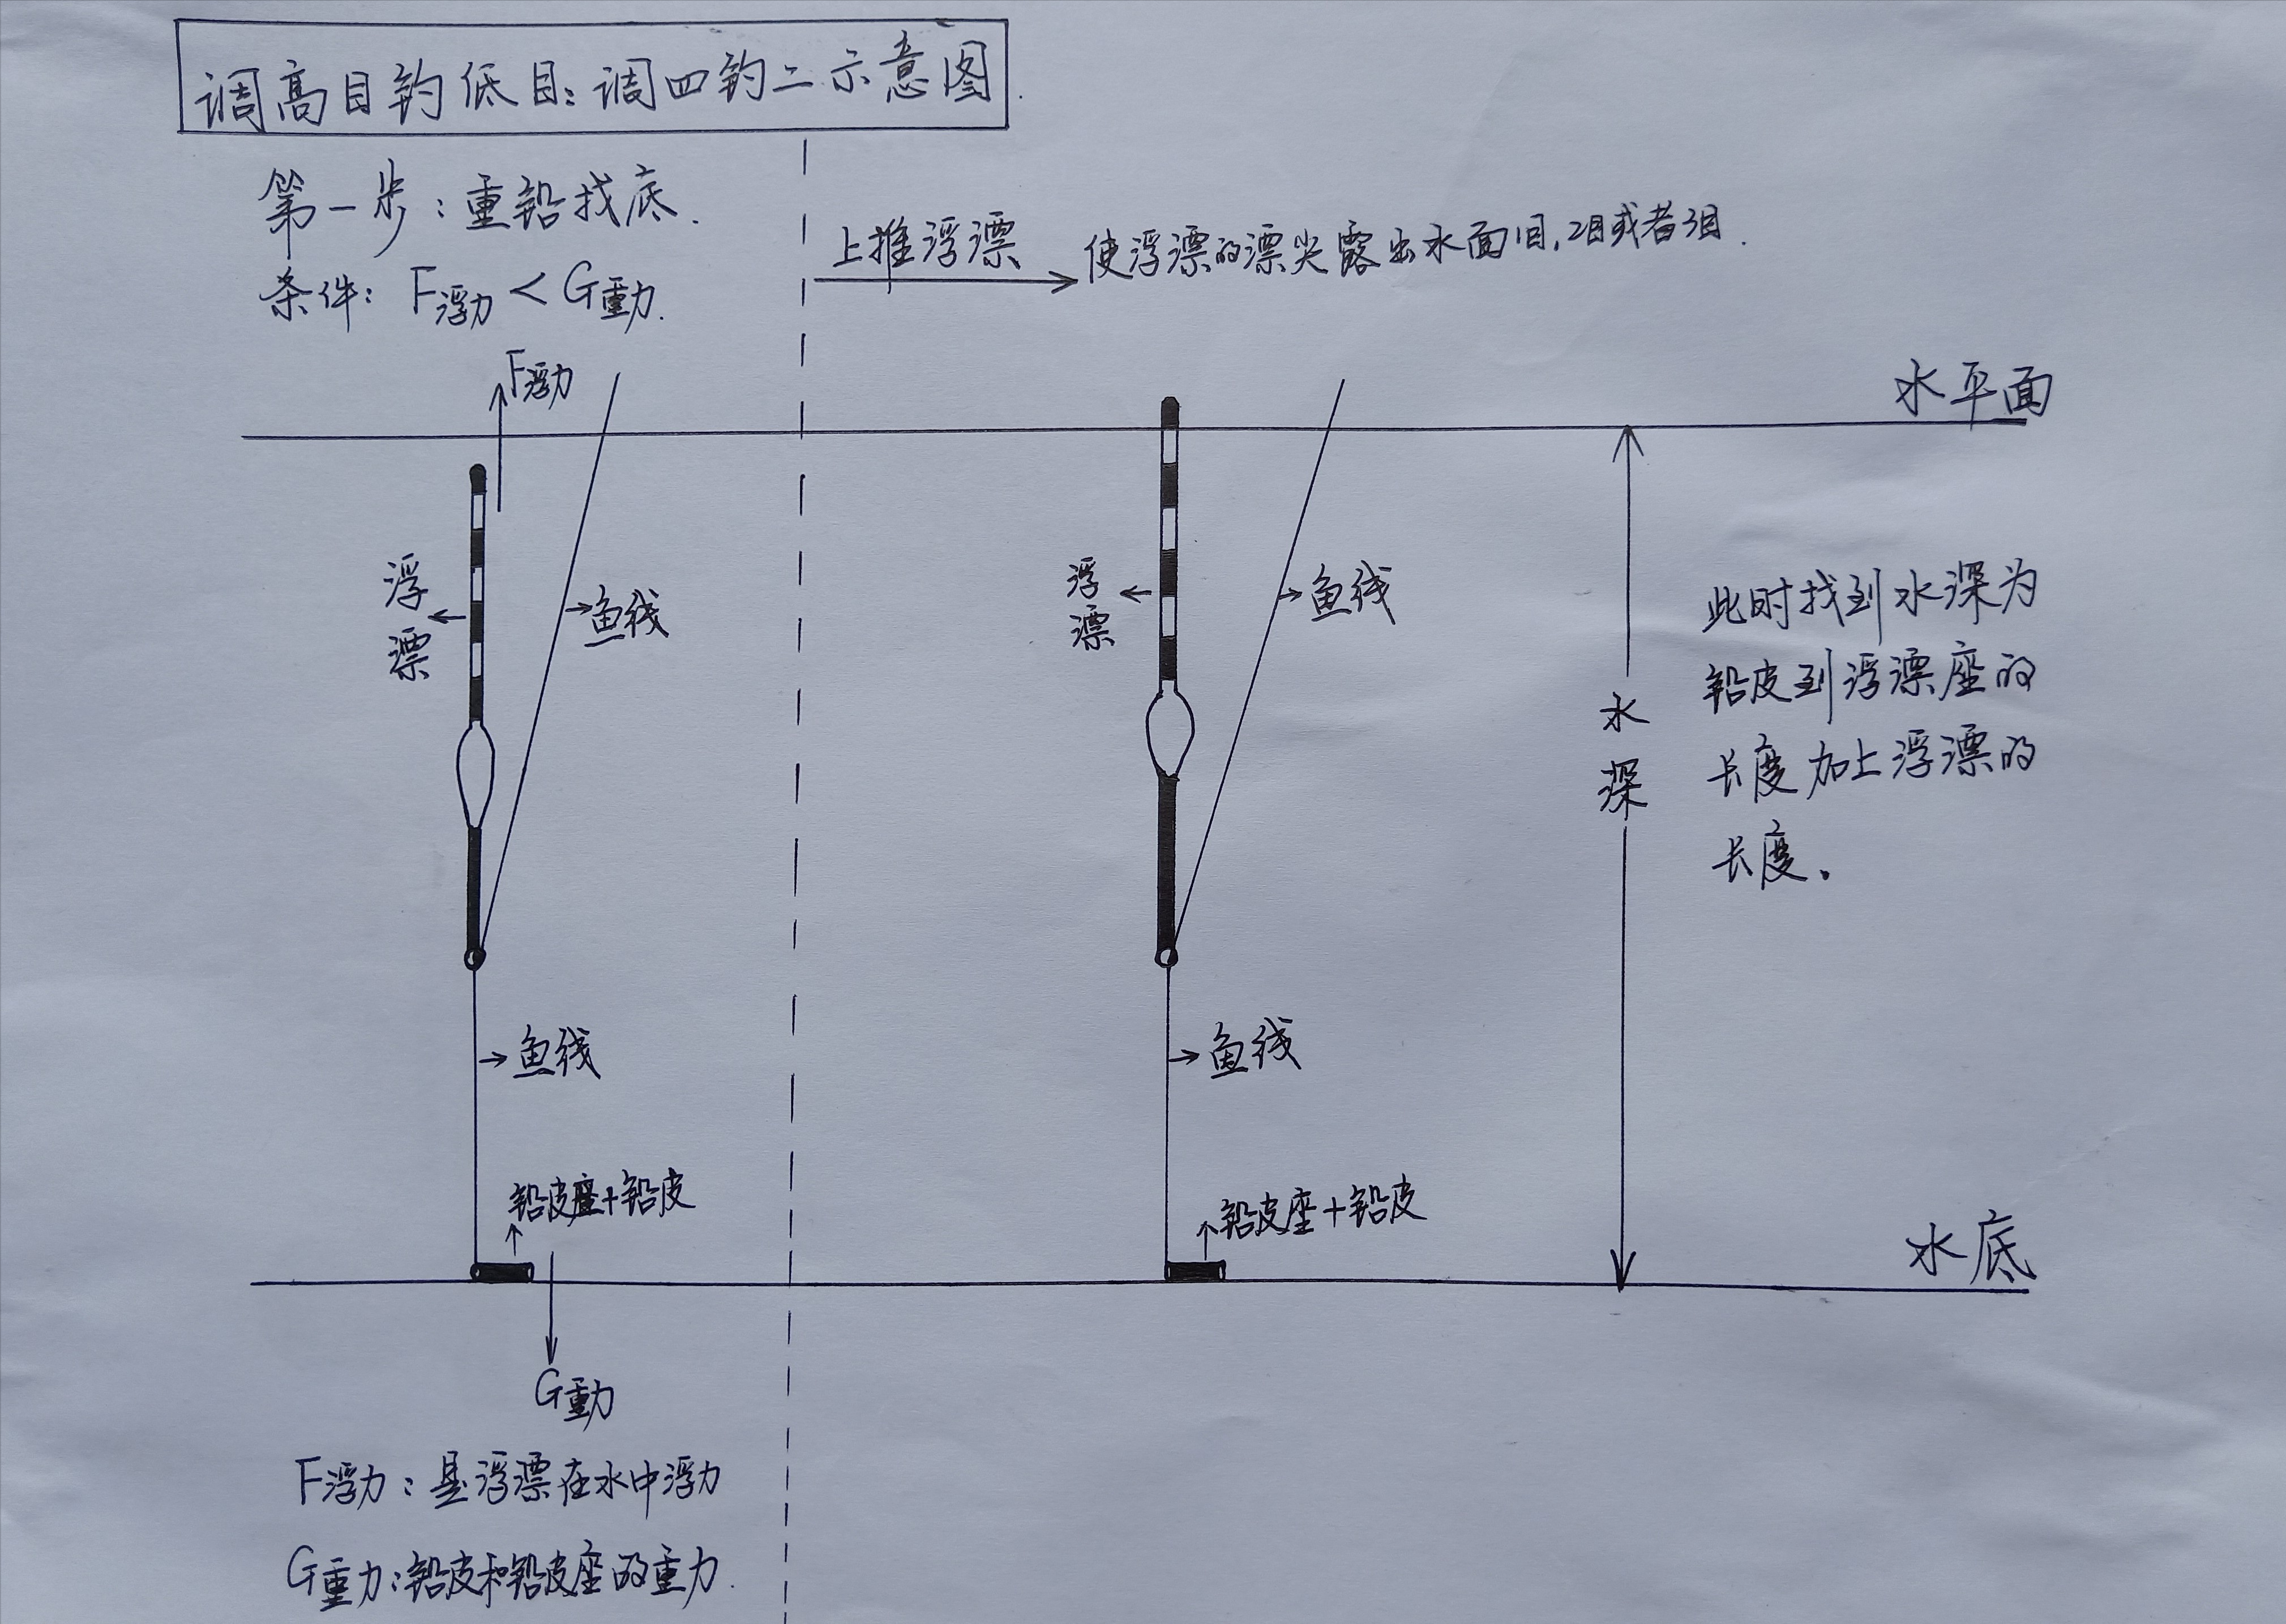 调高目钓低目：调四钓二示意图.
第一步：重铅找底.
条件：F浮力 < G重力.
上推浮漂
使浮漂的漂尖露出水面1目，2目或者3目.
F浮力
水平面
浮漂
鱼线
浮漂
鱼线
水深
此时找到水深为
铅皮到浮漂座的
长度加上浮漂的
长度。
鱼线
鱼线
铅皮座+铅皮
铅皮座+铅皮
水底
G重力
F浮力：是浮漂在水中浮力
G重力：铅皮和铅皮座的重力.